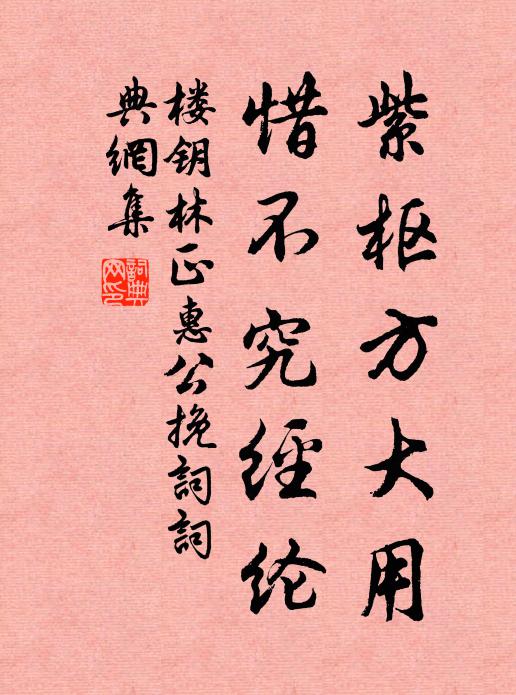 紫枢方大用
惜不究經纶
楼钥林正惠公挽詞詞
典網集
詞典网印